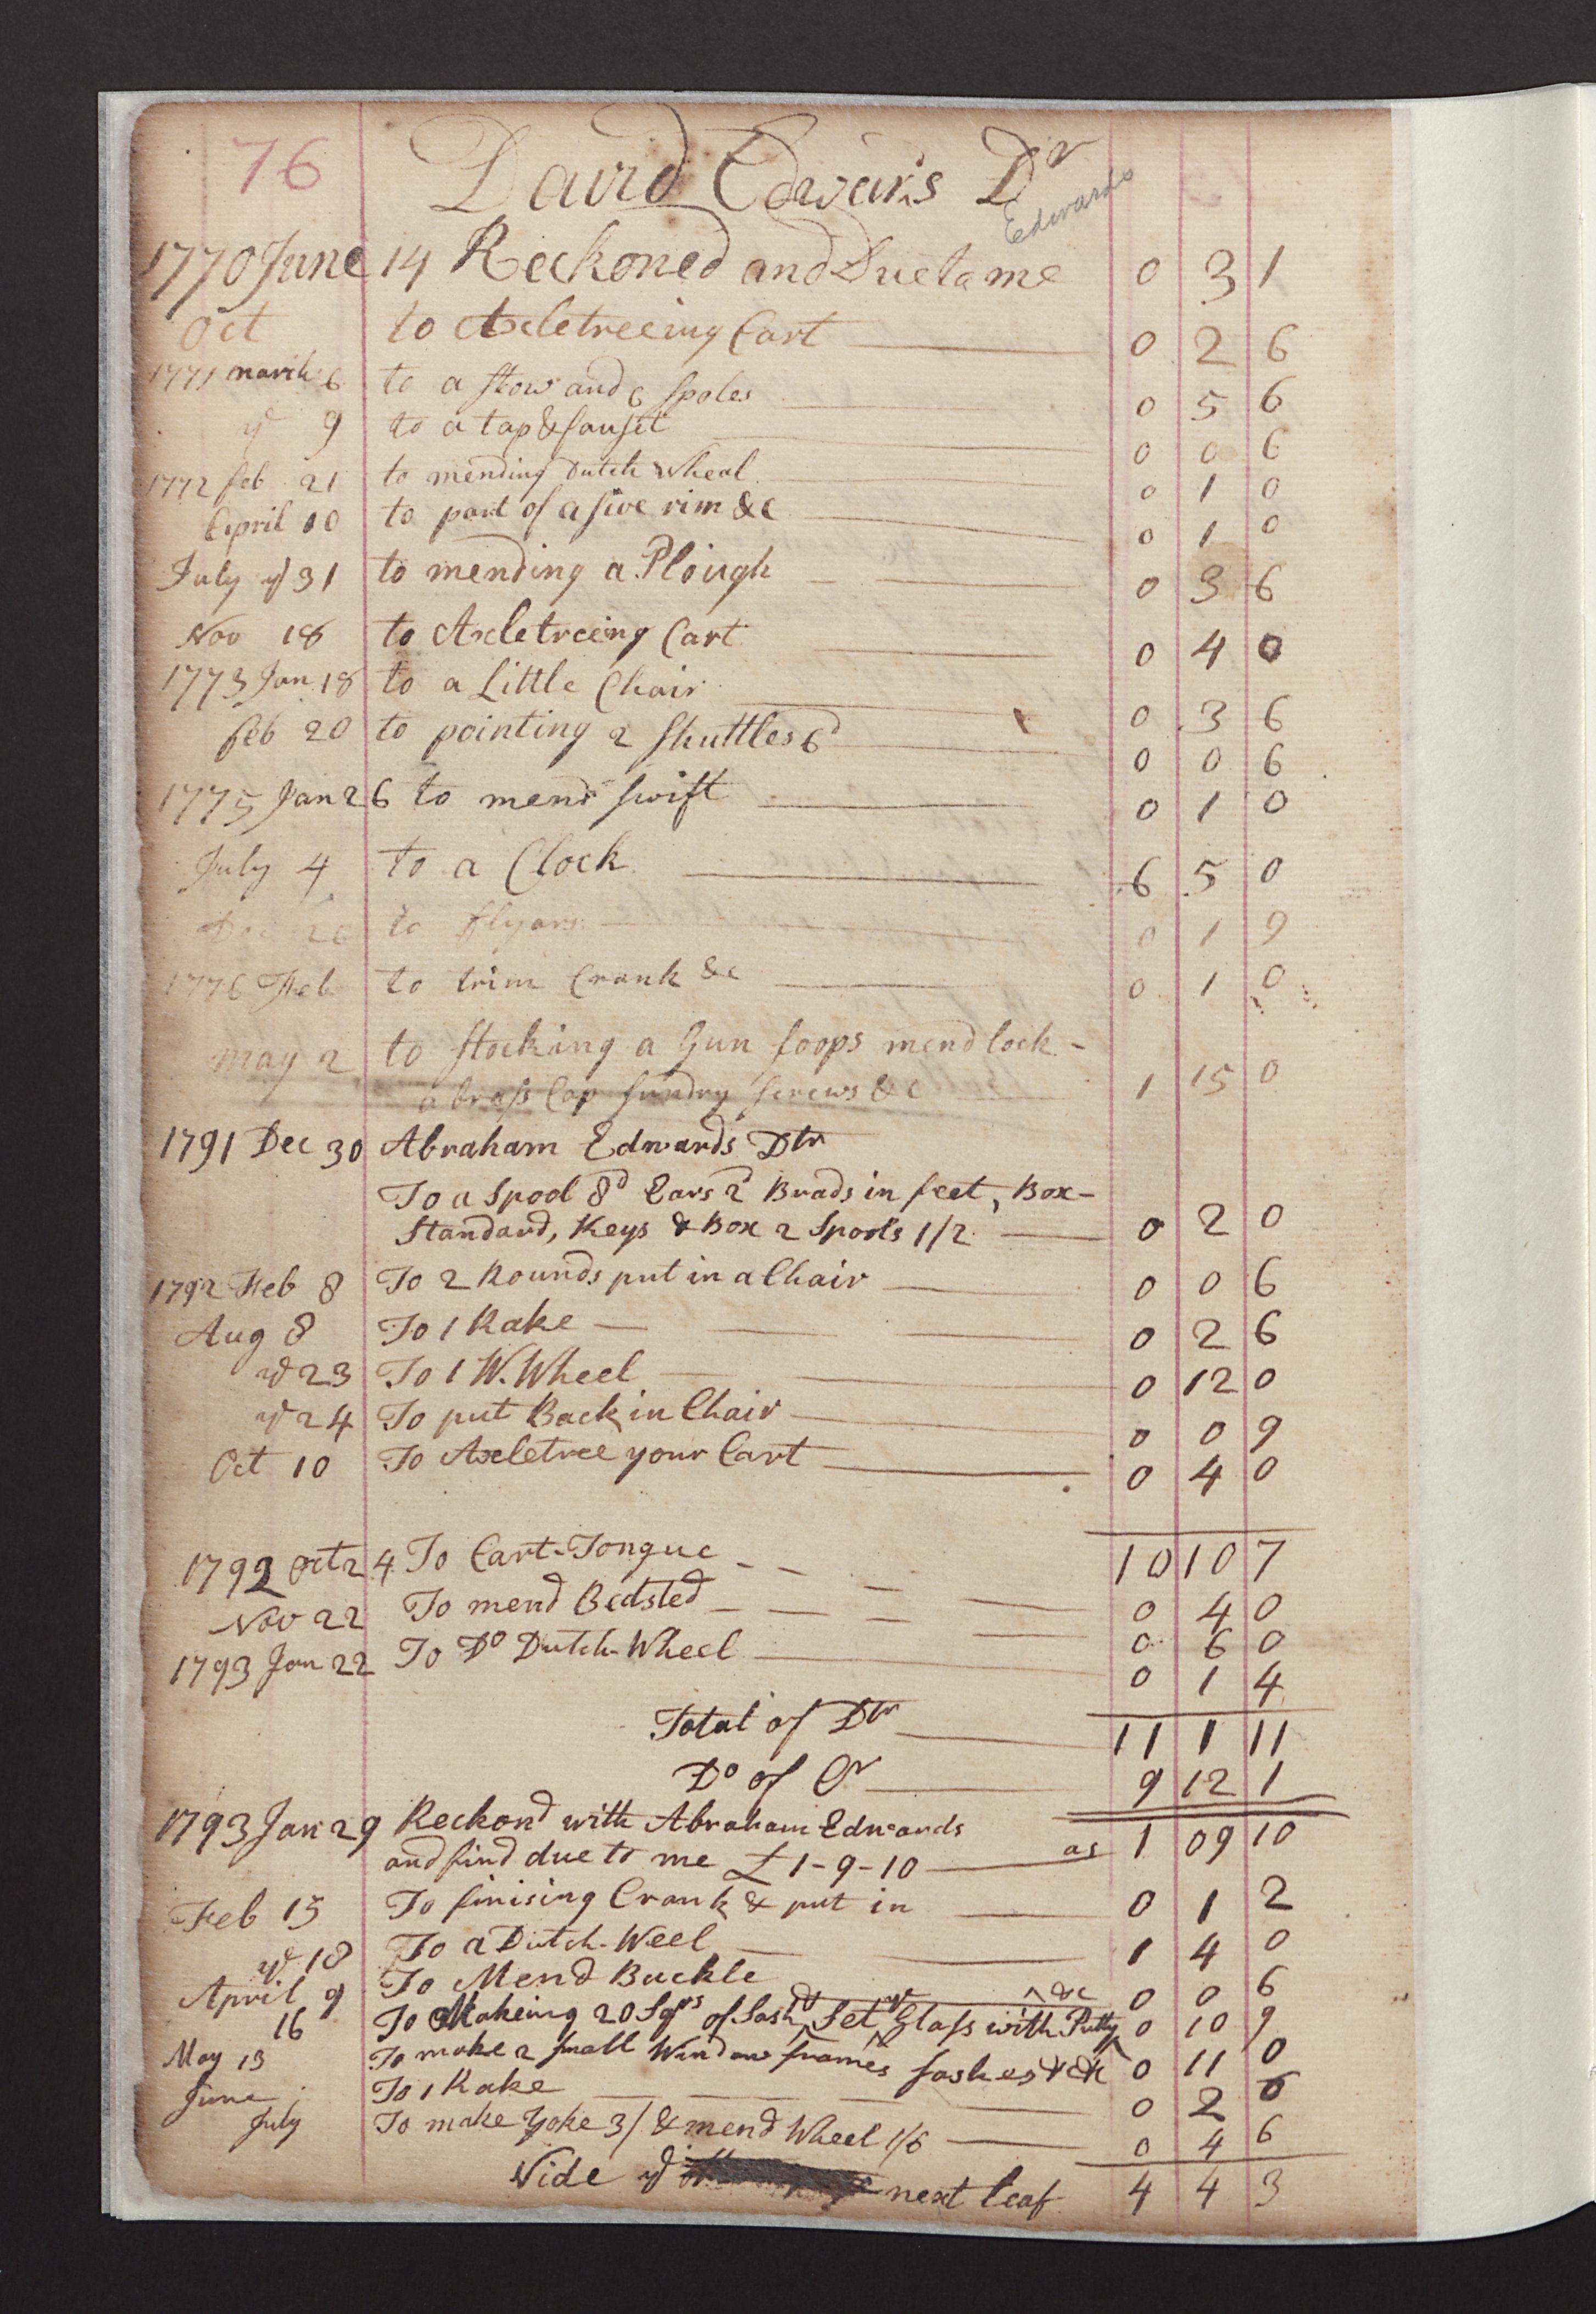 76
David Edwars Dr
Edwards
1770 June 14 Reckoned and Due to me 0 3 1
Oct to Axletreeing Cart 0 2 6
1771 march 6 to a and 6 spoles 0 5 6
yd 9 to a tap & fauset 0 0 6
1772 feb 21 to mending Dutch wheal 0 1 0
April 10 to part of a sive rim &c 0 1 0
July yd 31 to mending a Plough 0 3 6
Nov 18 to Axletreeing Cart 0 4 0
1773 Jan 18 to a Little Chair 0 3 6
feb 20 to pointing 2 shuttles 6d 0 0 6
1775 Jan 26 to mend swift 0 1 0
July 4 to a Clock 6 5 0
to flyars 0 1 9
1776 Feb to trim Crank &c 0 1 0
may 2 to stocking a Gun loops mend lock -
a brass Cap sundry screws &c 1 15 0
1791 Dec 30 Abraham Edwards Dtr
To a Spool 8d Ears 2d Brads in feet, Box-
Standard, Keys & Box 2 Spools 1/2 0 2 0
1792 Feb 8 To 2 Rounds put in a Chair 0 0 6
Aug 8 To 1 Rake 0 2 6
yd 23 To 1 W. Wheel 0 12 0
yd 24 To put Back in Chair 0 0 9
Oct 10 To Axletree your Cart 0 4 0
10 10 7
1792 Oct 24 To Cart-Tongue 0 4 0
Nov 22 To mend Bedsted 0 6 0
1793 Jan 22 To Do Dutch-Wheel 0 1 4
Total of Dtr 11 1 11
Do of Cr 9 12 1
1793 Jan 29 Reckond with Abraham Edwards
and find due to me £ 1-9-10 as 1 09 10
Feb 15 To finising Crank & put in 0 1 2
yd 18 To a Dutch-Weel 1 4 0
April 9 To Mend Buckle 0 0 6
16 To Makeing 20 Sqrs of Sash & Set ye Glass with Putty &c 0 10 9
May 13 To make 2 small Window frames sashes & &c 0 11 0
June To 1 Rake 0 2 6
July To make Yoke 3/ & mend Wheel 1/6 0 4 6
Vide yd next leaf 4 4 3